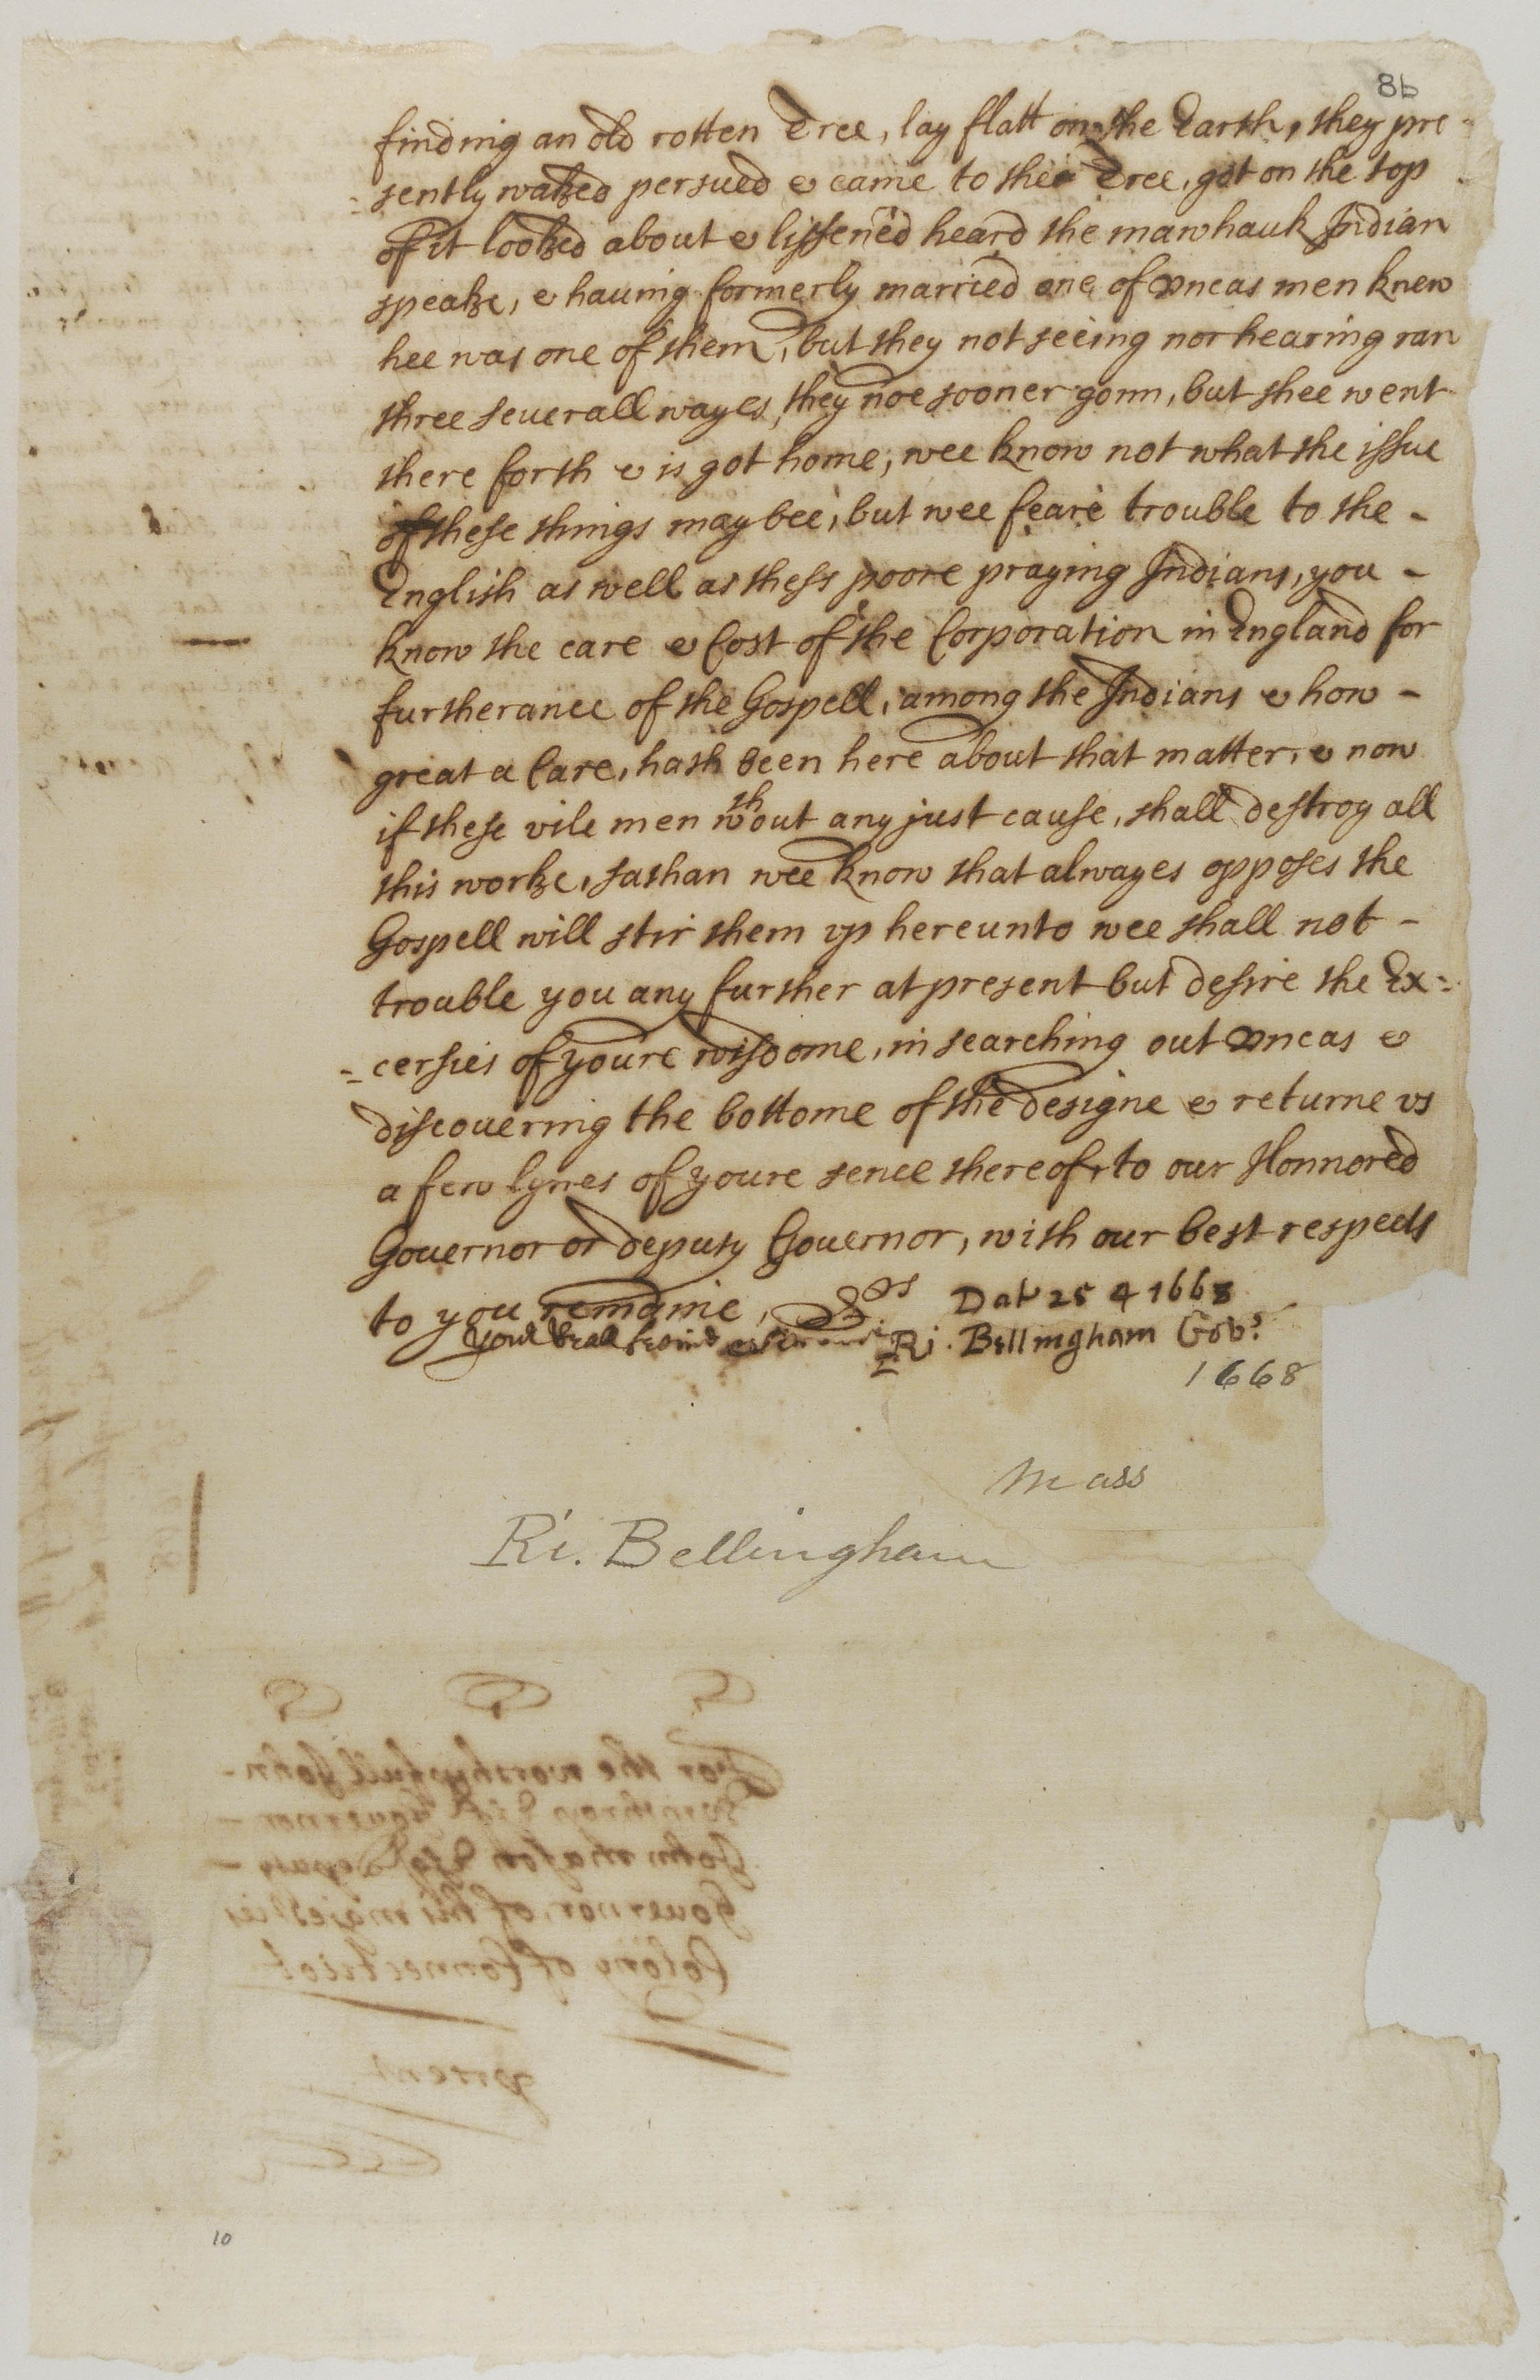 8b
finding an old rotten Tree, lay flatt on the Earth, they pre-
=sently waked persued & came to the Tree, got on the top
of it looked about & lissened heard the mawhauk Indian
speake, & hauing formerly married one of Vncas men knew
hee was one of them, but they not seeing nor hearing ran
three seuerall wayes, they noe sooner gonn, but shee went
there forth & is got home, wee know not what the issue
of these things may bee, but wee feare trouble to the -
English as well as thess poore praying Indians, you -
know the care & Cost of the Corporation in England for
furtherance of the Gospell, among the Indians & how -
great a Care, hath been here about that matter, & now
if these vile men wthout any just cause, shall destroy all
this worke, sathan wee know that alwayes opposes the
Gospell will stir them vp hereunto wee shall not -
trouble you any further at present but desire the Ex=
=cersies of youre wisdome, in searching out Vncas &
discouering the bottome of the designe & returne vs
a few lynes of youre sence thereof, to our Honnored
Gouernor or deputy Gouernor, with our best respects
to you remaine, Srs Dat 25 4 1668
Your Reall freind & Ri. Bellingham Govr
1668
Mass
Ri. Bellingham
For the worshipfull John -
Winthrop Esq Gouernor -
John mason Esq Deputy -
Gouernor, of his majesties
Colony of Connecticot
present
10